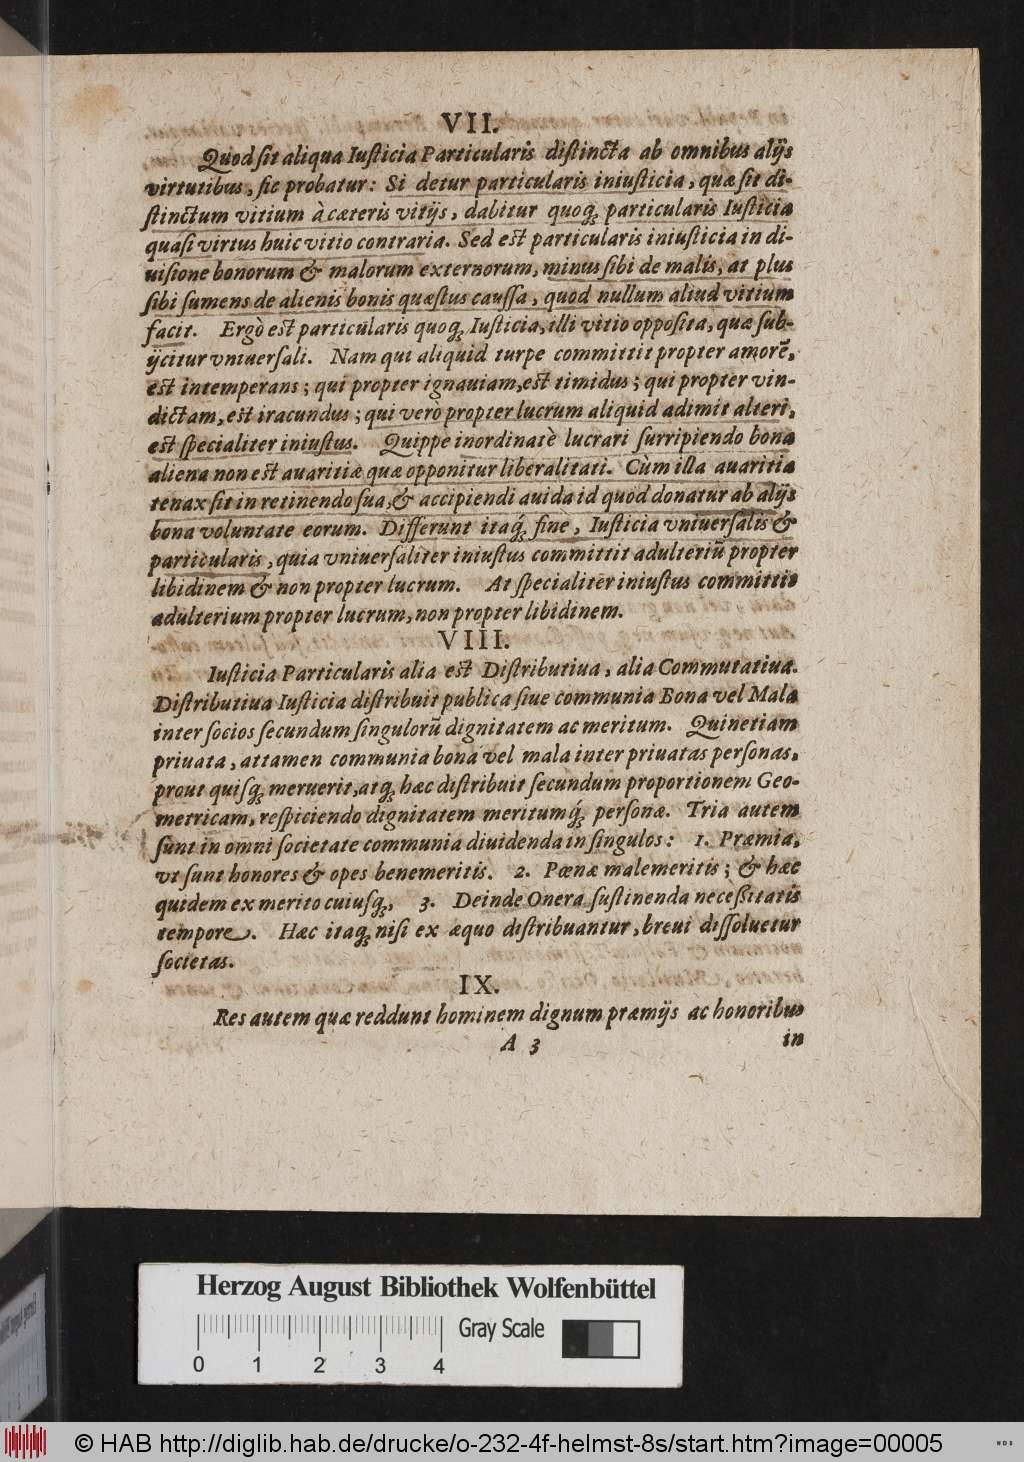 VII.
Quod ſit aliqua Iuſticia Particularis diſtincta ab omnibus alijs
virtutibus, ſic probatur: Si detur particularis iniuſticia, quæ ſit di-
ſtinctum vitium à cæteris vitijs, dabitur quoq; particularis Iuſticia
quaſi virtus huic vitio contraria. Sed eſt particularis iniuſticia in di-
uiſione bonorum & malorum externorum, minus ſibi de malis, at plus
ſibi ſumens de alienis bonis quæſtus cauſſa, quod nullum aliud vitium
facit. Ergò eſt particularis quoq; Iuſticia, illi vitio oppoſita, quæ ſub-
ijcitur vniuerſali. Nam qui aliquid turpe committit propter amorē,
eſt intemperans; qui propter ignauiam, eſt timidus; qui propter vin-
dictam, eſt iracundus; qui verò propter lucrum aliquid adimit alteri,
eſt ſpecialiter iniuſtus. Quippe inordinatè lucrari ſurripiendo bona
aliena non eſt auaritiæ quæ opponitur liberalitati. Cùm illa auaritia
tenax ſit in retinendo ſua, & accipiendi auida id quod donatur ab alijs
bona voluntate eorum. Differunt itaq́; finè, Iuſticia vniuerſalis &
particularis, quia vniuerſaliter iniuſtus committit adulteriū propter
libidinem & non propter lucrum. At ſpecialiter iniuſtus committit
adulterium propter lucrum, non propter libidinem.
VIII.
Iuſticia Particularis alia eſt Diſtributiua, alia Commutatiua.
Diſtributiua Iuſticia diſtribuit publica ſiue communia Bona vel Mala
inter ſocios ſecundum ſingulorū dignitatem ac meritum. Quinetiam
priuata, attamen communia bona vel mala inter priuatas perſonas,
prout quiſq; meruerit, atq; hæc diſtribuit ſecundum proportionem Geo-
metricam, reſpiciendo dignitatem meritumq́; perſonæ. Tria autem
ſunt in omni ſocietate communia diuidenda in ſingulos: 1. Præmia,
vt ſunt honores & opes benemeritis. 2. Pœnæ malemeritis; & hæc
quidem ex merito cuiuſq;, 3. Deinde Onera ſuſtinenda neceſsitatis
tempore. Hæc itaq; niſi ex æquo diſtribuantur, breui diſſoluetur
ſocietas.
IX.
Res autem quæ reddunt hominem dignum præmijs ac honoribus
A 3 in
Herzog August Bibliothek Wolfenbüttel
Gray Scale
0 1 2 3 4
© HAB http://diglib.hab.de/drucke/o-232-4f-helmst-8s/start.htm?image=00005